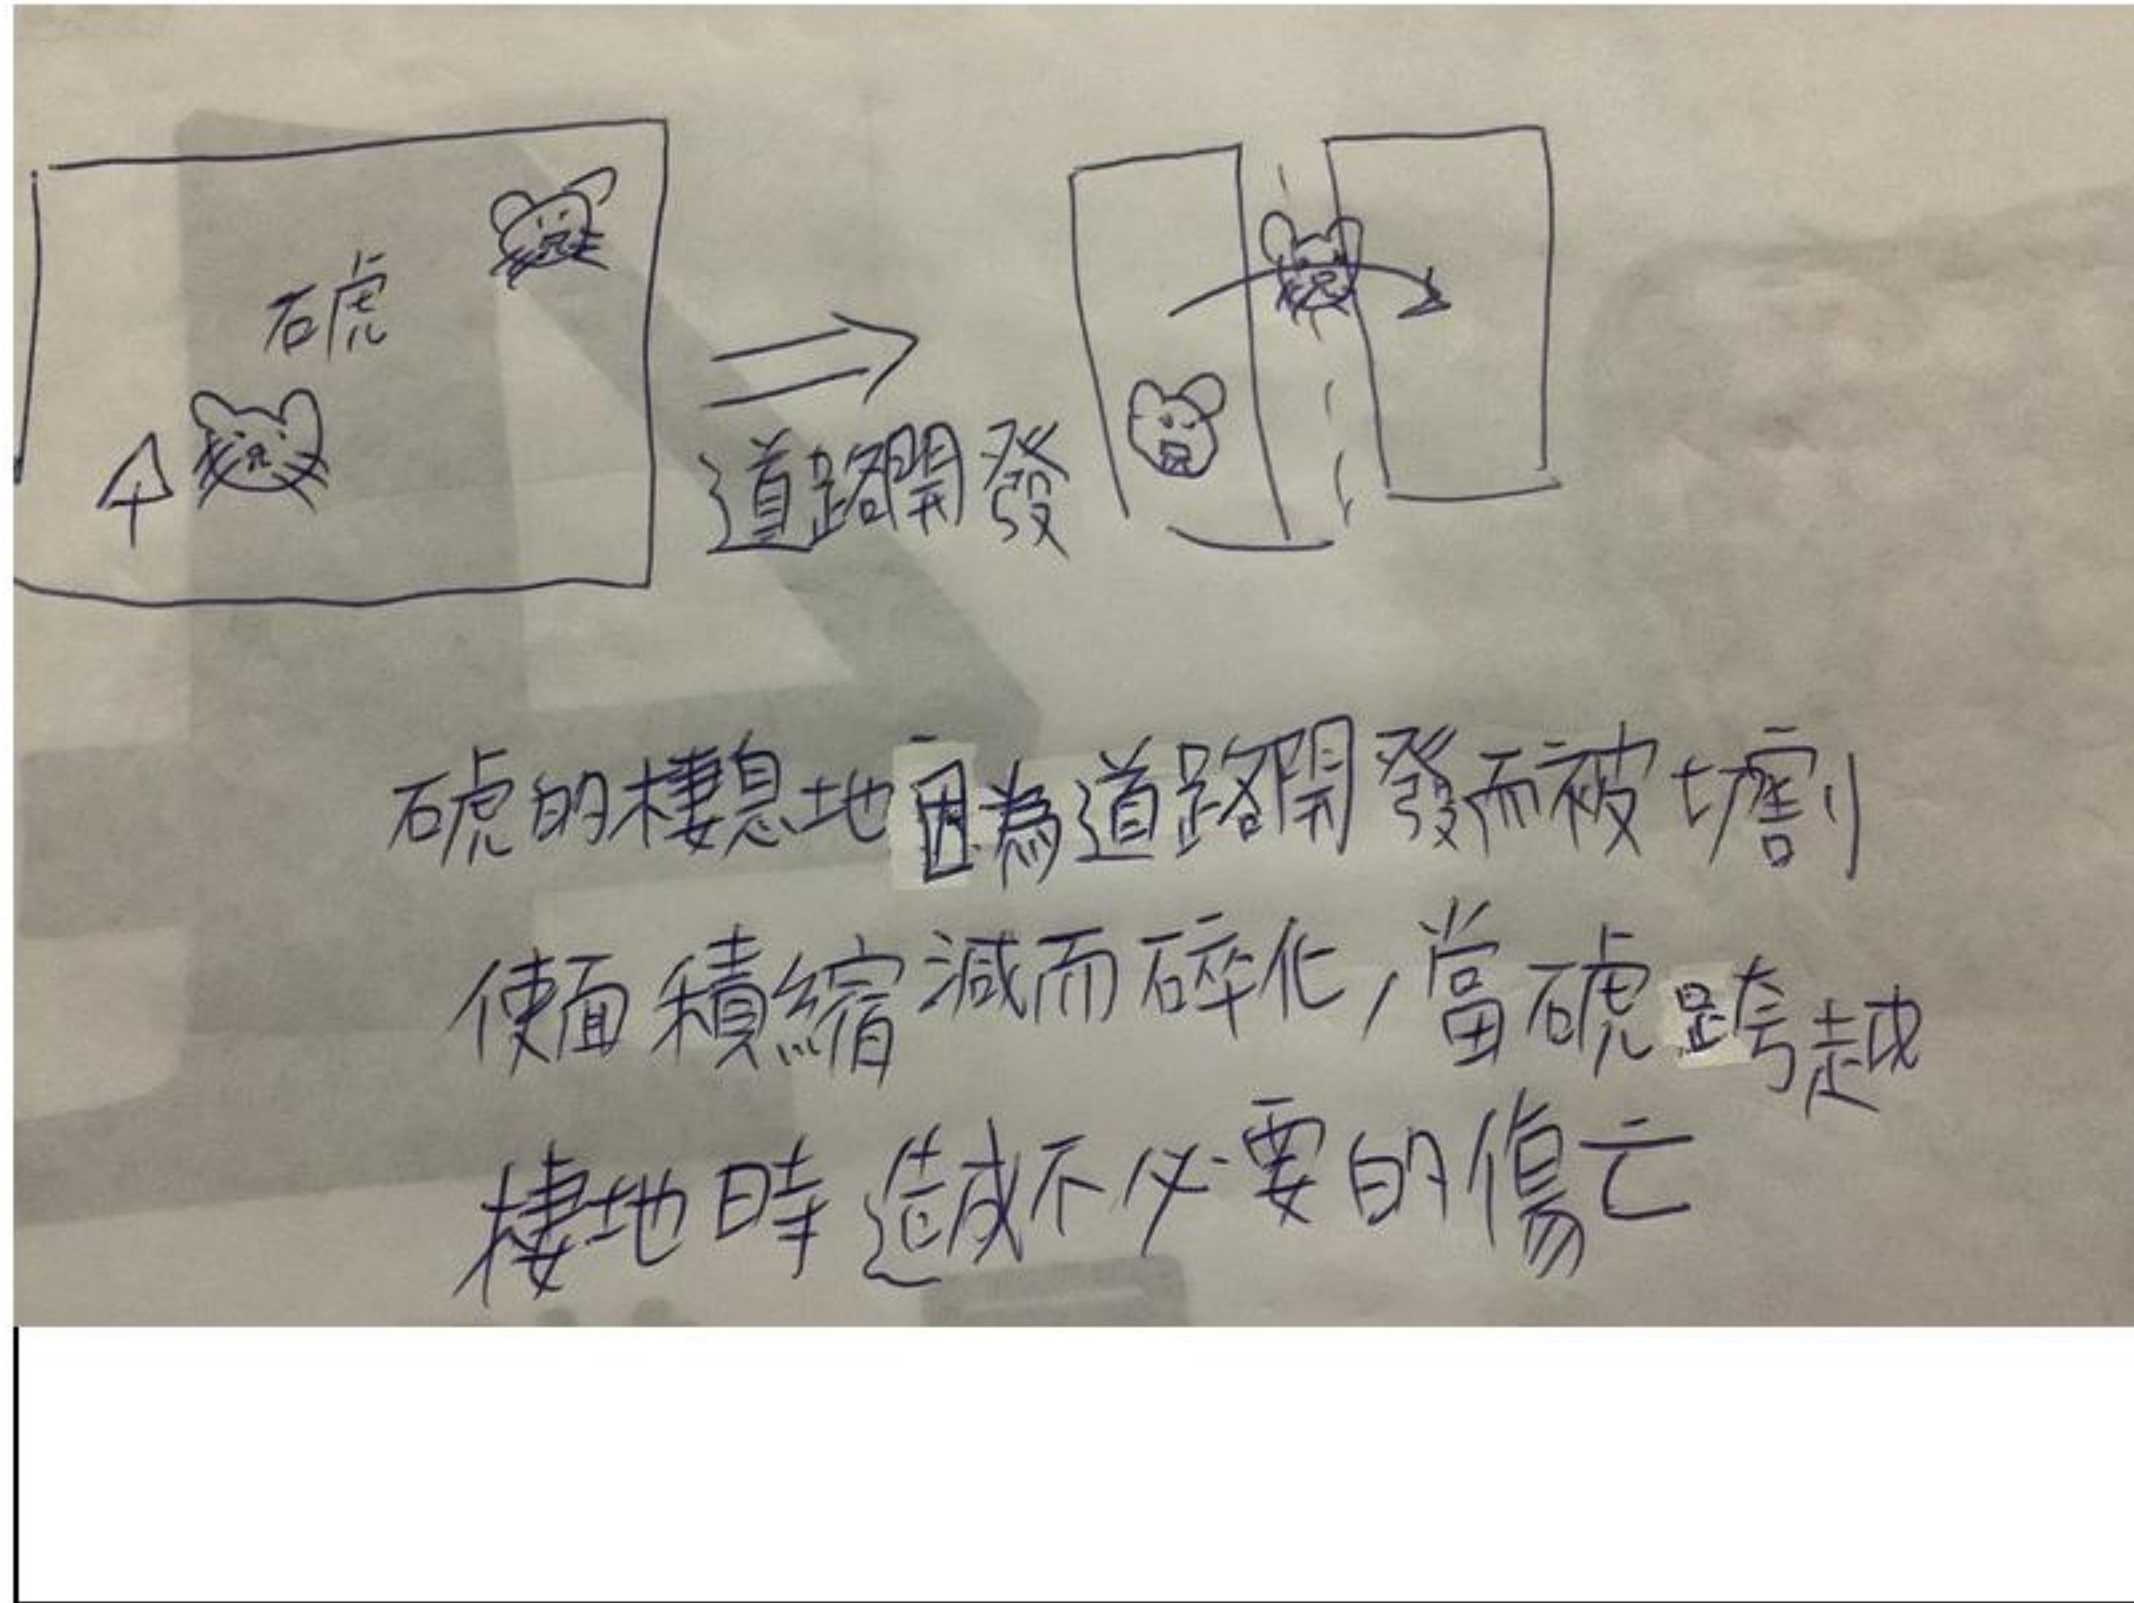 石虎
道路開發
石虎的棲息地因為道路開發而被切割
使面積縮減而碎化,當石虎跨越
棲地時造成不必要的傷亡